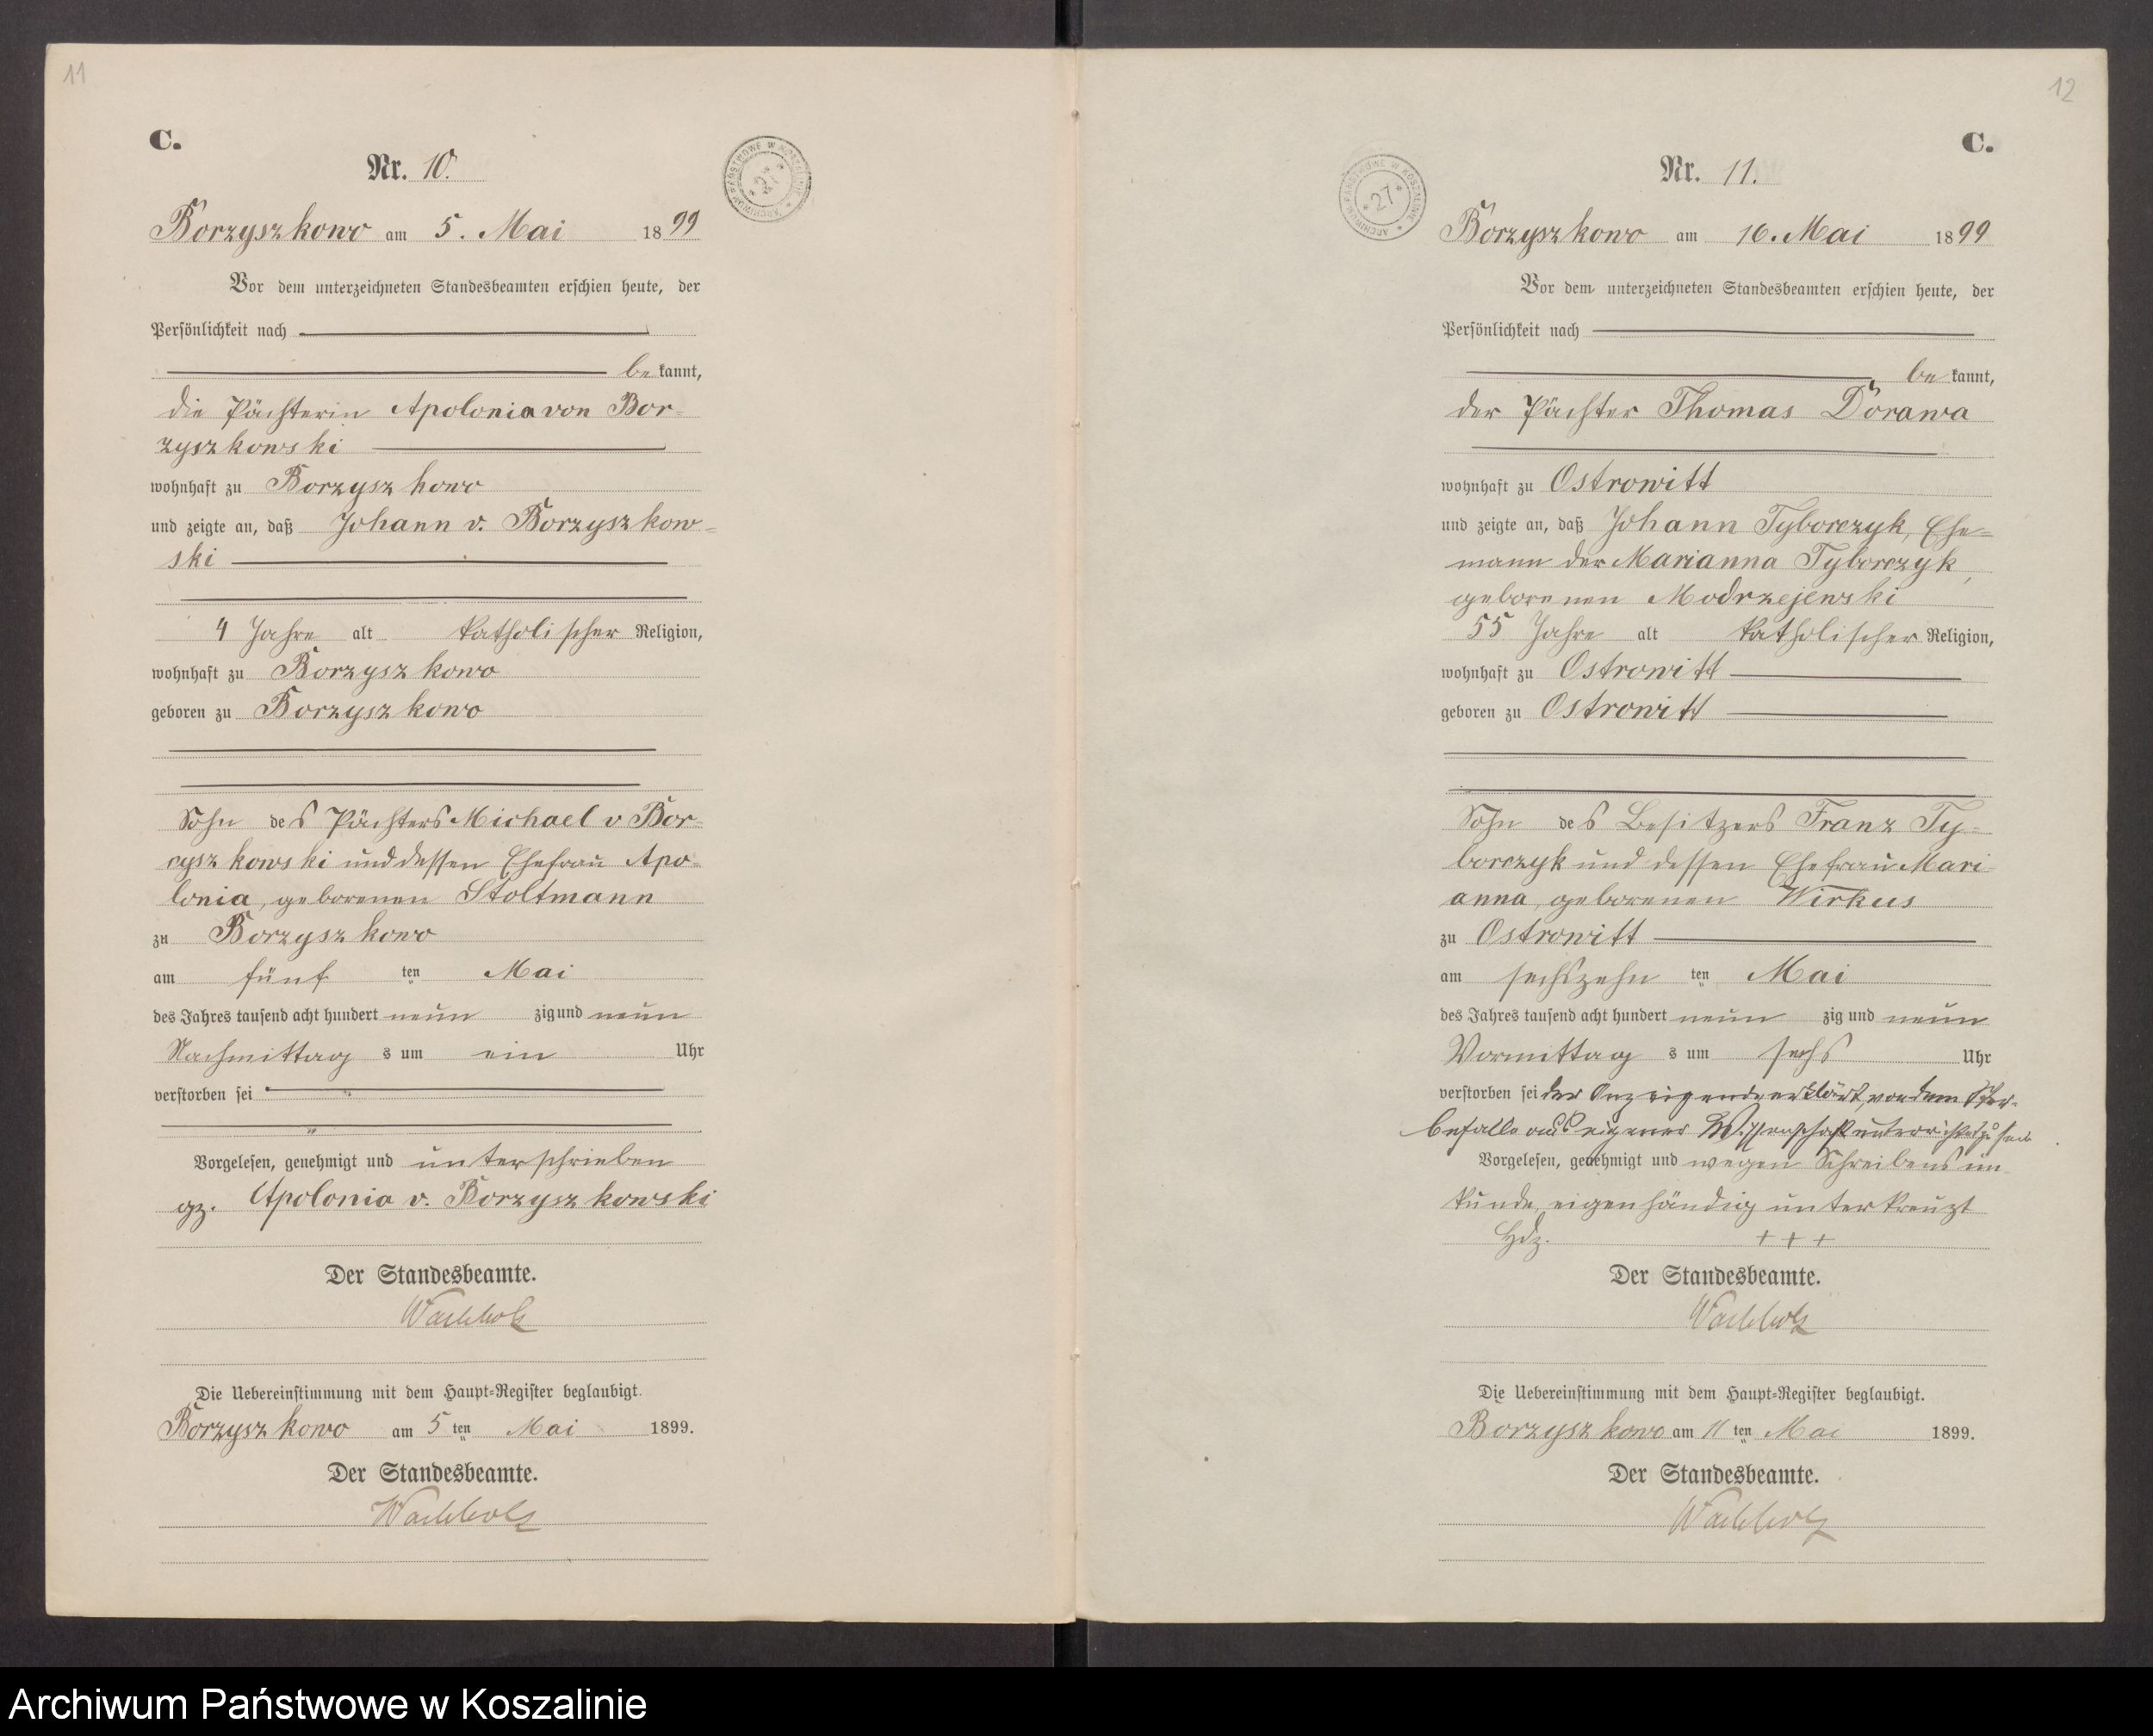 11
C.
Nr. 10.
Borzyszkowo am 5. Mai 1899
Vor dem unterzeichneten Standesbeamten erschien heute, der
Persönlichkeit nach
be kannt,
die Pächterin Apolonia von Bor-
zyszkowski
wohnhaft zu Borzyszkowo
und zeigte an, daß Johann v. Borzyszkow-
ski
4 Jahre alt katholischer Religion,
wohnhaft zu Borzyszkowo
geboren zu Borzyszkowo
Sohn des Pächters Michael v Bor-
zyszkowski und dessen Ehefrau Apo-
lonia, geborenen Stoltmann
zu Borzyszkowo
am fünf ten Mai
des Jahres tausend acht hundert neun zig und neun
Nachmittag s um ein Uhr
verstorben sei
Vorgelesen, genehmigt und unterschrieben
gz. Apolonia v. Borzyszkowski
Der Standesbeamte.
Wachholz
Die Uebereinstimmung mit dem Haupt-Register beglaubigt.
Borzyszkowo am 5 ten Mai 1899.
Der Standesbeamte.
Wachholz
ARCHIWUM PAŃSTWOWE W KOSZALINIE
* 27 *
12
C.
Nr. 11.
Borzyszkowo am 16. Mai 1899
Vor dem unterzeichneten Standesbeamten erschien heute, der
Persönlichkeit nach
be kannt,
der Pächter Thomas Dorawa
wohnhaft zu Ostrowitt
und zeigte an, daß Johann Tyborczyk, Ehe-
mann der Marianna Tyborczyk,
geborenen Modrzejewski
55 Jahre alt katholischer Religion,
wohnhaft zu Ostrowitt
geboren zu Ostrowitt
Sohn des Besitzers Franz Ty-
borczyk und dessen Ehefrau Mari
anna, geborenen Wirkus
zu Ostrowitt
am sechszehn ten Mai
des Jahres tausend acht hundert neun zig und neun
Vormittag s um sechs Uhr
verstorben sei der Anzeigende erklärt, von dem Ster-
befalle aus eigener Wissenschaft unterrichtet zu sein
Vorgelesen, genehmigt und wegen Schreibensun-
kunde, eigenhändig unterkreuzt
Hdz. + + +
Der Standesbeamte.
Wachholz
Die Uebereinstimmung mit dem Haupt-Register beglaubigt.
Borzyszkowo am 11 ten Mai 1899.
Der Standesbeamte.
Wachholz
ARCHIWUM PAŃSTWOWE W KOSZALINIE
* 27 *
Archiwum Państwowe w Koszalinie